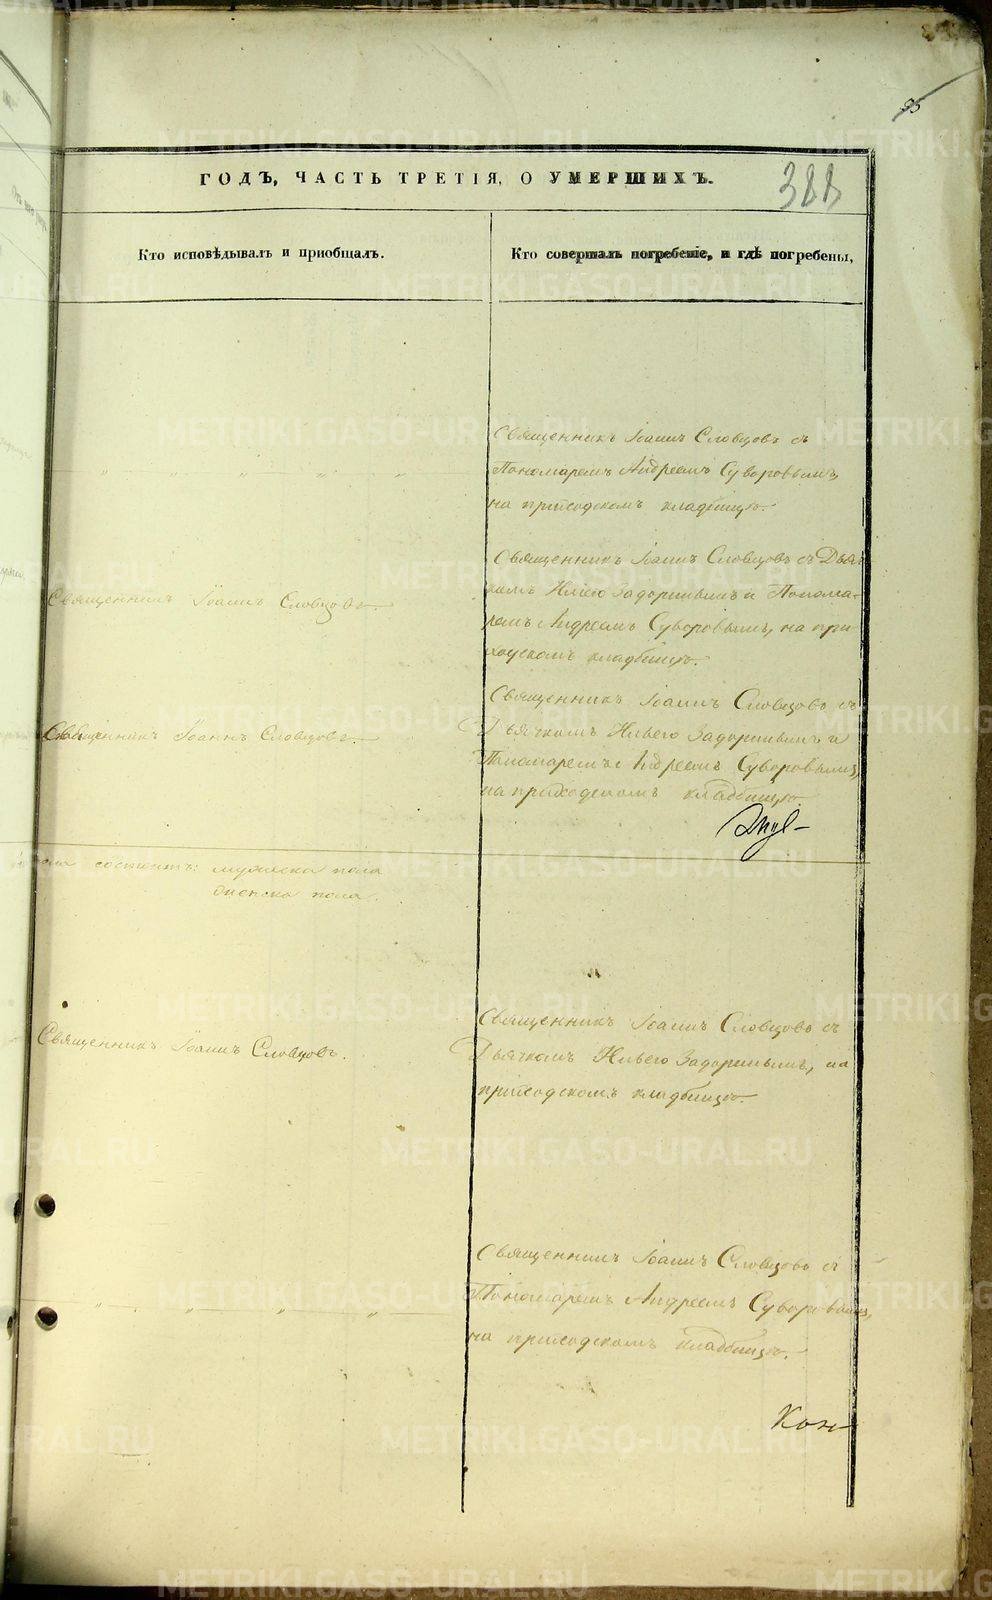 95
ГОДЪ, ЧАСТЬ ТРЕТІЯ, О УМЕРШИХЪ.
388
Кто исповѣдывалъ и приобщалъ.
Кто совершалъ погребеніе, и гдѣ погребены,
Священникъ Іоаннъ Словцовъ съ
Пономаремъ Андреемъ Суворовымъ,
на приходскомъ кладбищѣ.
Священникъ Іоаннъ Словцовъ.
Священникъ Іоаннъ Словцовъ съ Дьяч-
комъ Ильею Задоринымъ и Понома-
ремъ Андреемъ Суворовымъ, на при-
ходскомъ кладбищѣ.
Священникъ Іоаннъ Словцовъ.
Священникъ Іоаннъ Словцовъ съ
Дьячкомъ Ильею Задоринымъ и
Пономаремъ Андреемъ Суворовымъ,
на приходскомъ кладбищѣ.
мужеска пола
женска пола.
Священникъ Іоаннъ Словцовъ.
Священникъ Іоаннъ Словцовъ съ
Дьячкомъ Ильею Задоринымъ, на
приходскомъ кладбищѣ.
Священникъ Іоаннъ Словцовъ съ
Пономаремъ Андреемъ Суворовымъ,
на приходскомъ кладбищѣ.
METRIKI.GASO-URAL.RU